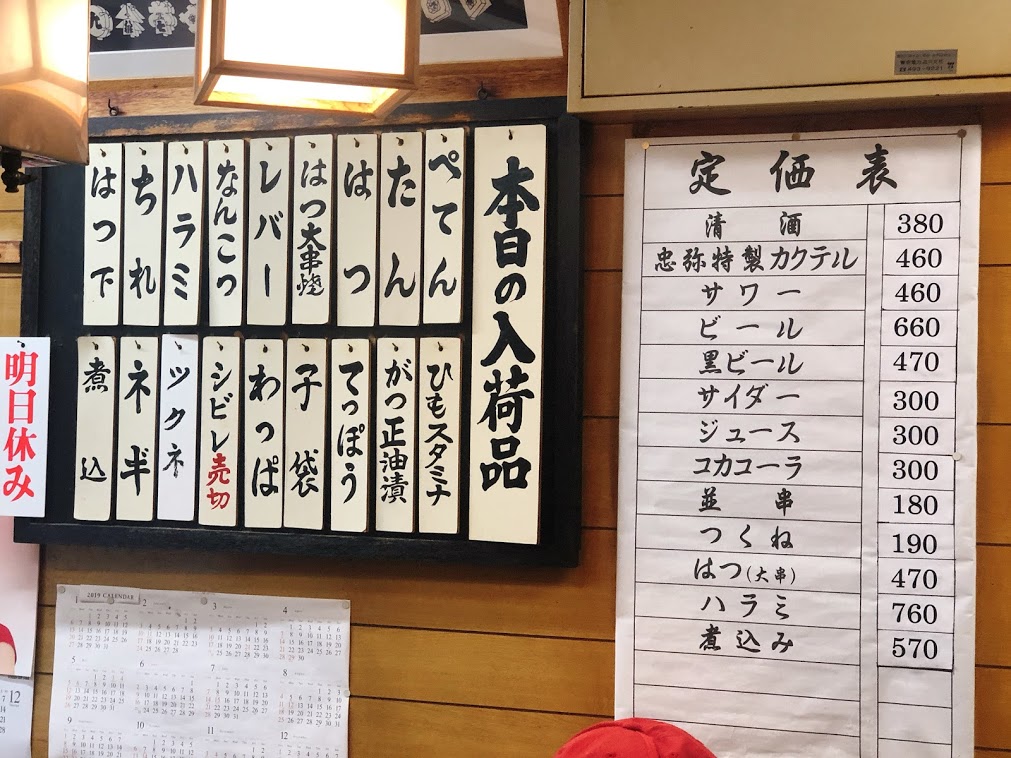 本日の入荷品
ぺてん
たん
はつ
はつ大串焼
レバー
なんこつ
ハラミ
ちれ
はつ下
ひもスタミナ
がつ正油漬
てっぽう
子袋
わっぱ
シビレ売切
ツクネ
ネギ
煮込
明日休み
定価表
清酒 380
忠弥特製カクテル 460
サワー 460
ビール 660
黒ビール 470
サイダー 300
ジュース 300
コカコーラ 300
並串 180
つくね 190
はつ(大串) 470
ハラミ 760
煮込み 570
2019 CALENDAR
1 2 3 4
5 6 7 8
9 10 11
12